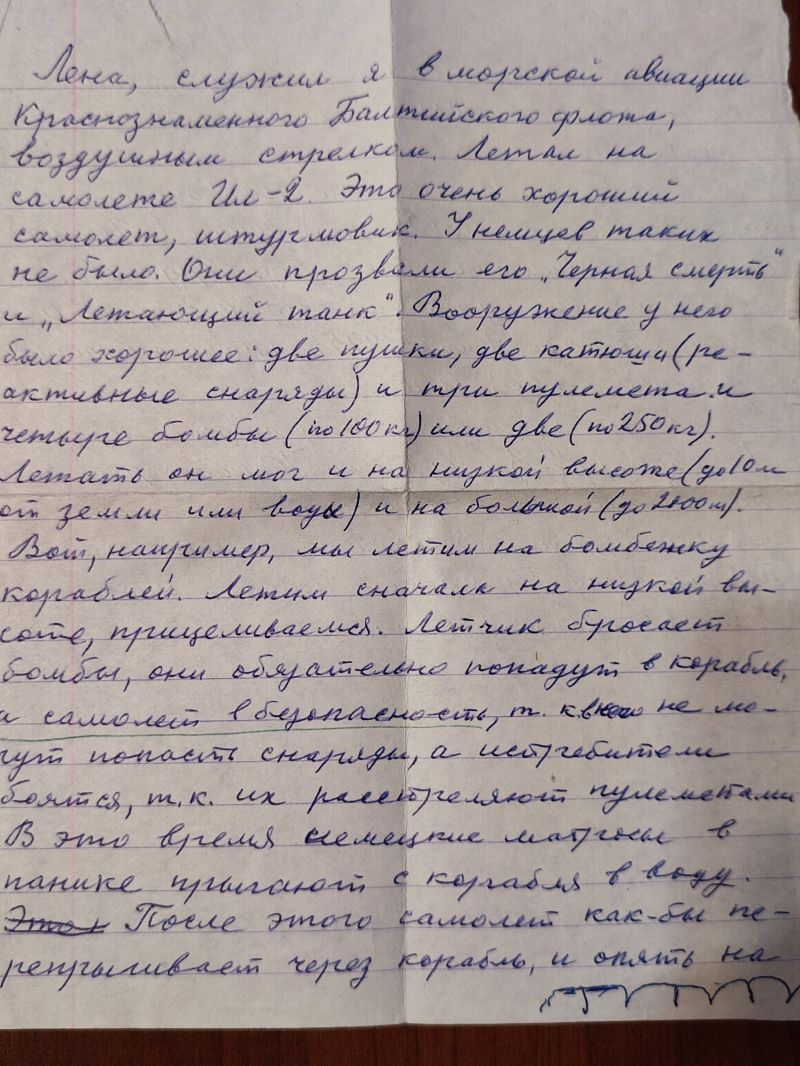 Лена, служил я в морской авиации
Краснознаменного Балтийского флота,
воздушным стрелком. Летал на
самолете Ил-2. Это очень хороший
самолет, штурмовик. У немцев таких
не было. Они прозвали его „Черная смерть"
и „Летающий танк". Вооружение у него
было хорошее: две пушки, две катюши (ре-
активные снаряды) и три пулемета и
четыре бомбы (по 100 кг) или две (по 250 кг).
Летать он мог и на низкой высоте (до 10 м
от земли или воды) и на большой (до 2000 м).
Вот, например, мы летим на бомбежку
кораблей. Летим сначала на низкой вы-
соте, прицеливаемся. Летчик бросает
бомбы, они обязательно попадут в корабль,
а самолет в безопасность, т. к. в него не мо-
гут попасть снаряды, а истребители
боятся, т.к. их расстреляют пулеметами
В это время немецкие матросы в
панике прыгают с корабля в воду.
После этого самолет как-бы пе-
репрыгивает через корабль, и опять на